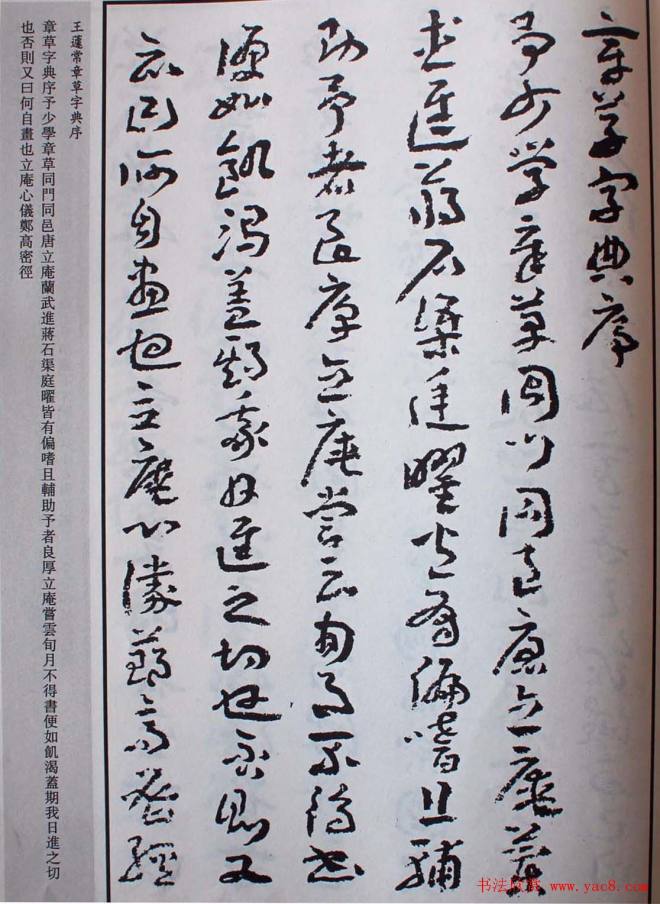 章草字典序
予少學章草同門同邑唐立庵蘭武
進蔣石渠庭曜皆有偏嗜且輔
助予者良厚立庵嘗云旬月不得書
便如飢渴蓋期我日進之切也否則又
云曰何自畫也立庵心儀鄭高密經
王蘧常章草字典序
章草字典序予少學章草同門同邑唐立庵蘭武進蔣石渠庭曜皆有偏嗜且輔助予者良厚立庵嘗雲旬月不得書便如飢渴蓋期我日進之切
也否則又曰何自畫也立庵心儀鄭高密徑
书法欣赏 www.yac8.com